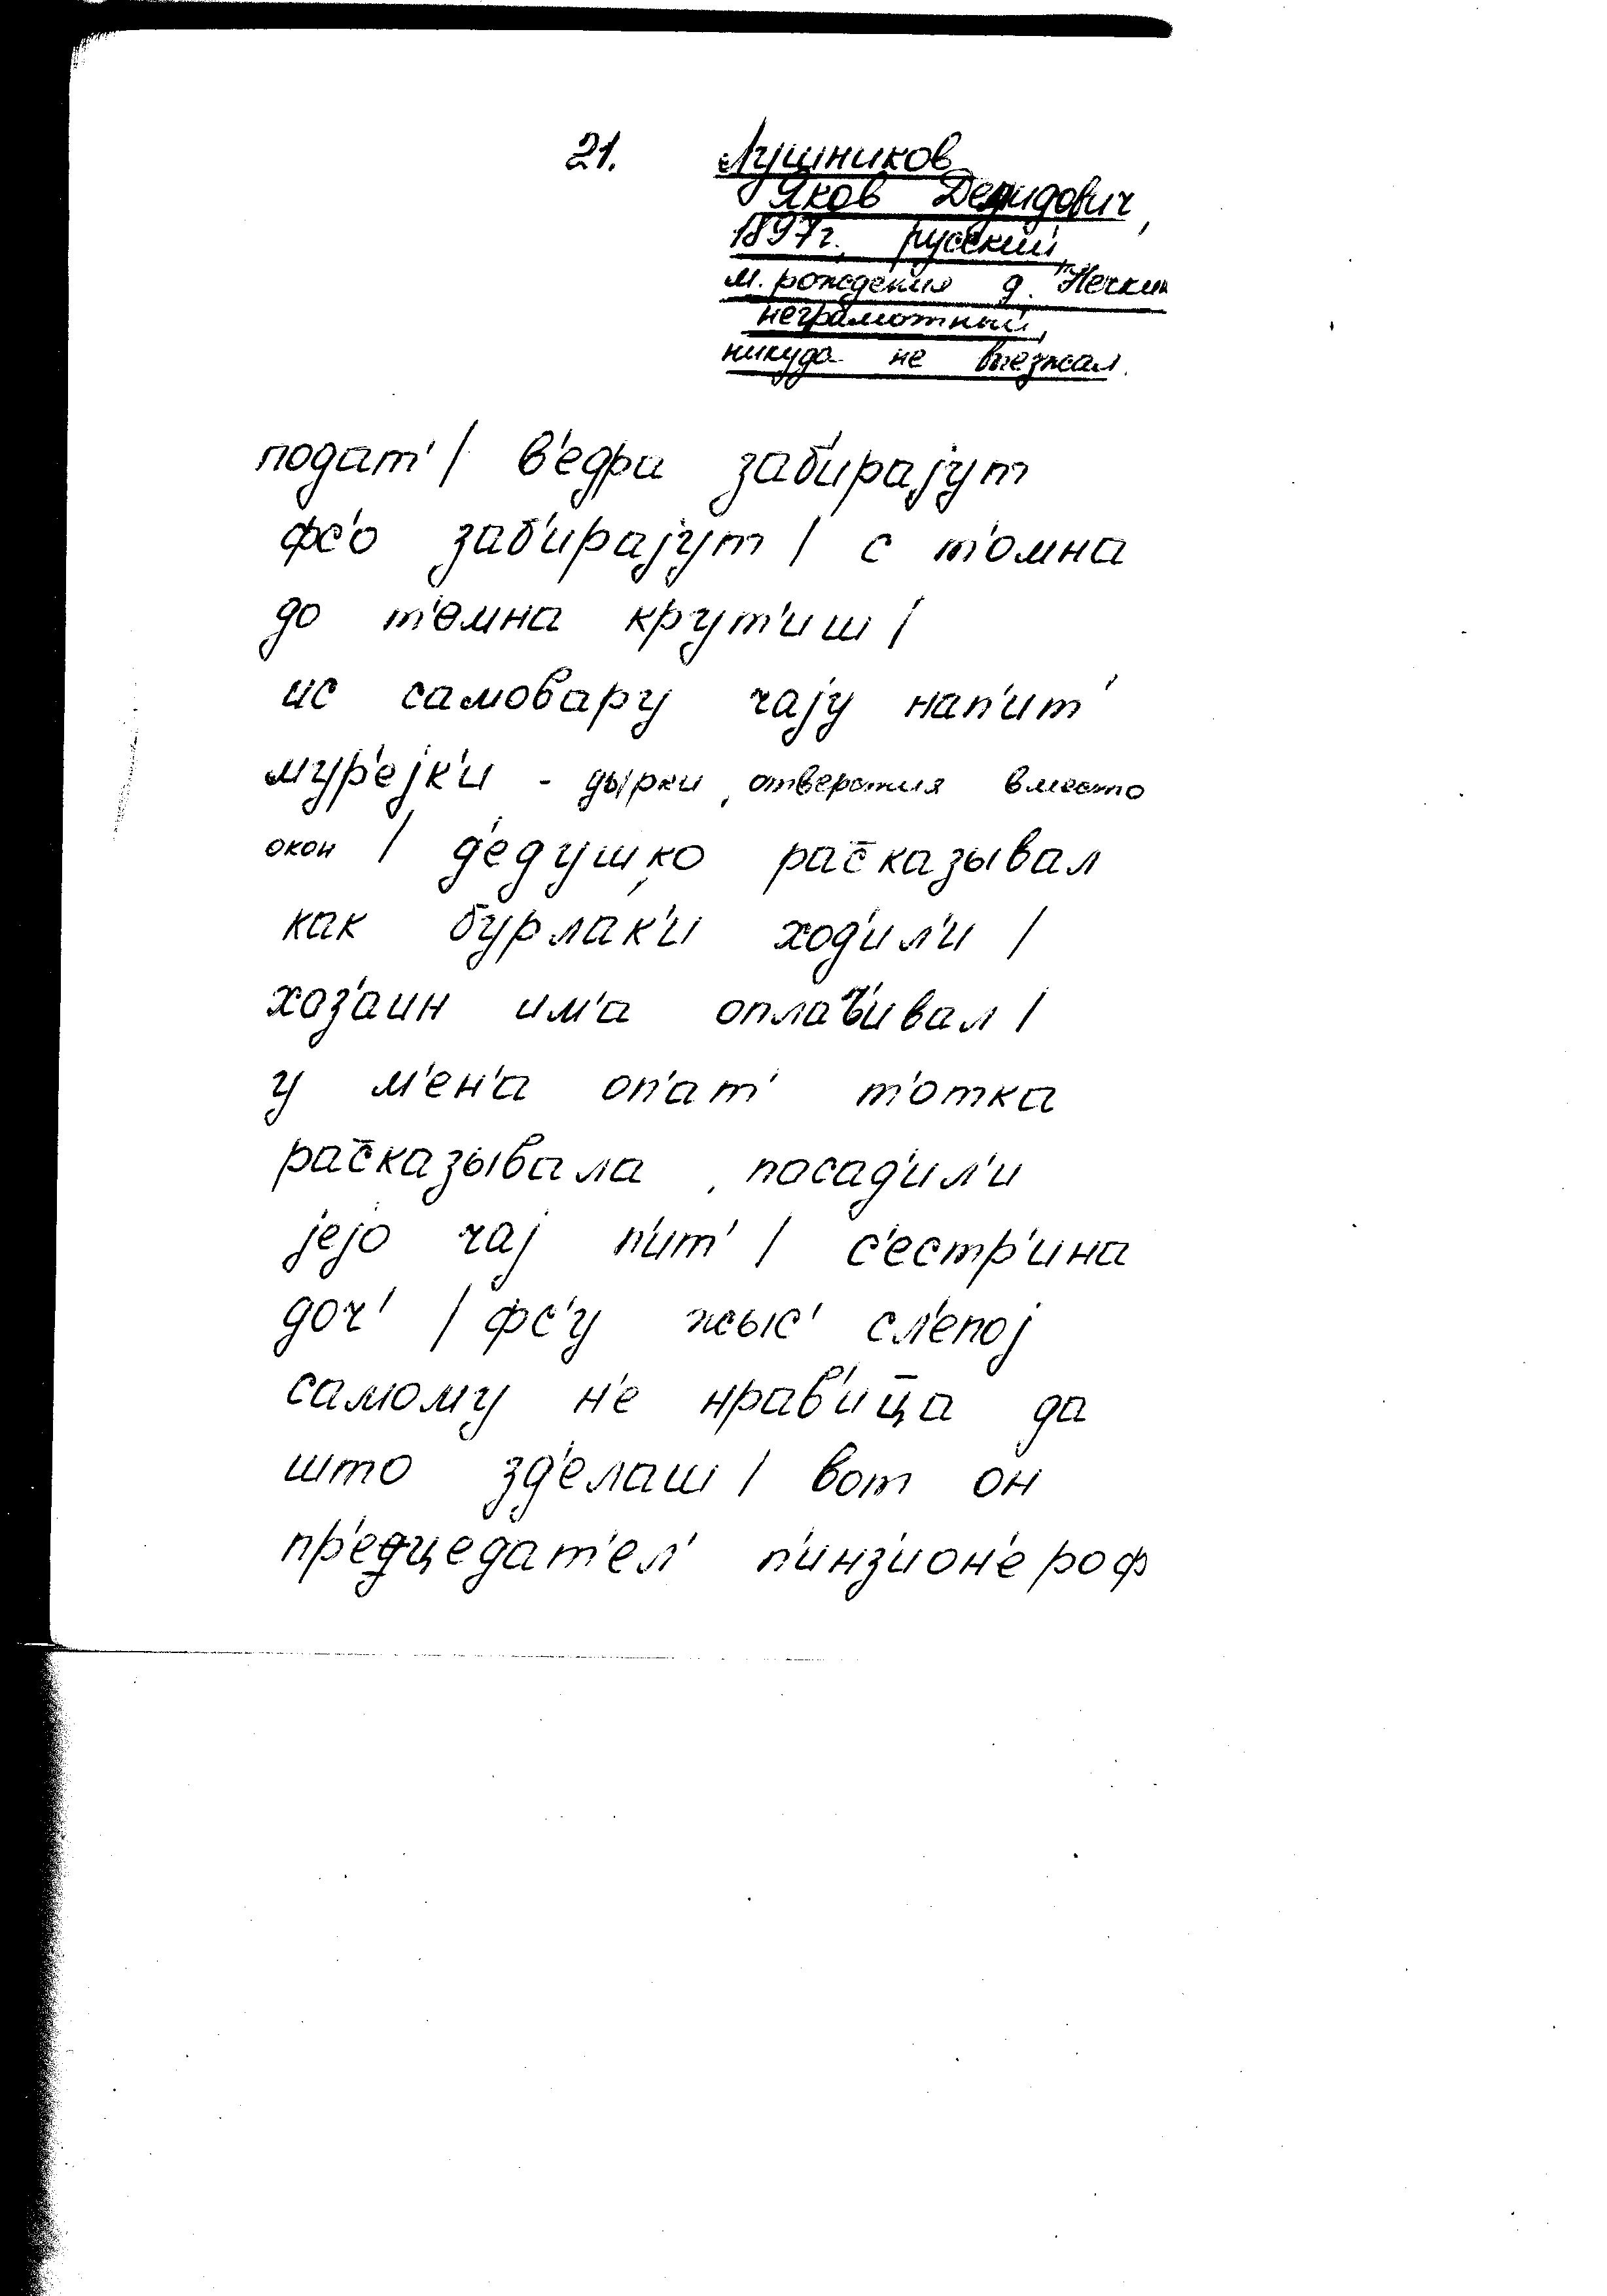 21. Лушников
Яков Демидович,
1897г., русский,
м. рождения д. "Нечкин
неграмотный,
никуда не выезжал.
подат' / в'едра заб'ирајут
фс'о заб'ирајут / с т'омна
до т'омна крут'иш /
ис самовару чају нап'ит'
мур'ејк'и - дырки, отверстия вместо
окон / д'едушко рас̄казывал
как бурлак'и ход'ил'и /
хоз'аин им'а опла̄ч'ивал /
у м'ен'а оп'ат' т'отка
рас̄казывала, посад'ил'и
јејо чај п'ит' / с'естр'ина
доч' / фс'у жыс' сл'епој
самому н'е нрав'иц̄а да
што зд'елаш / вот он
пр'едцедат'ел' п'инз'ион'ероф